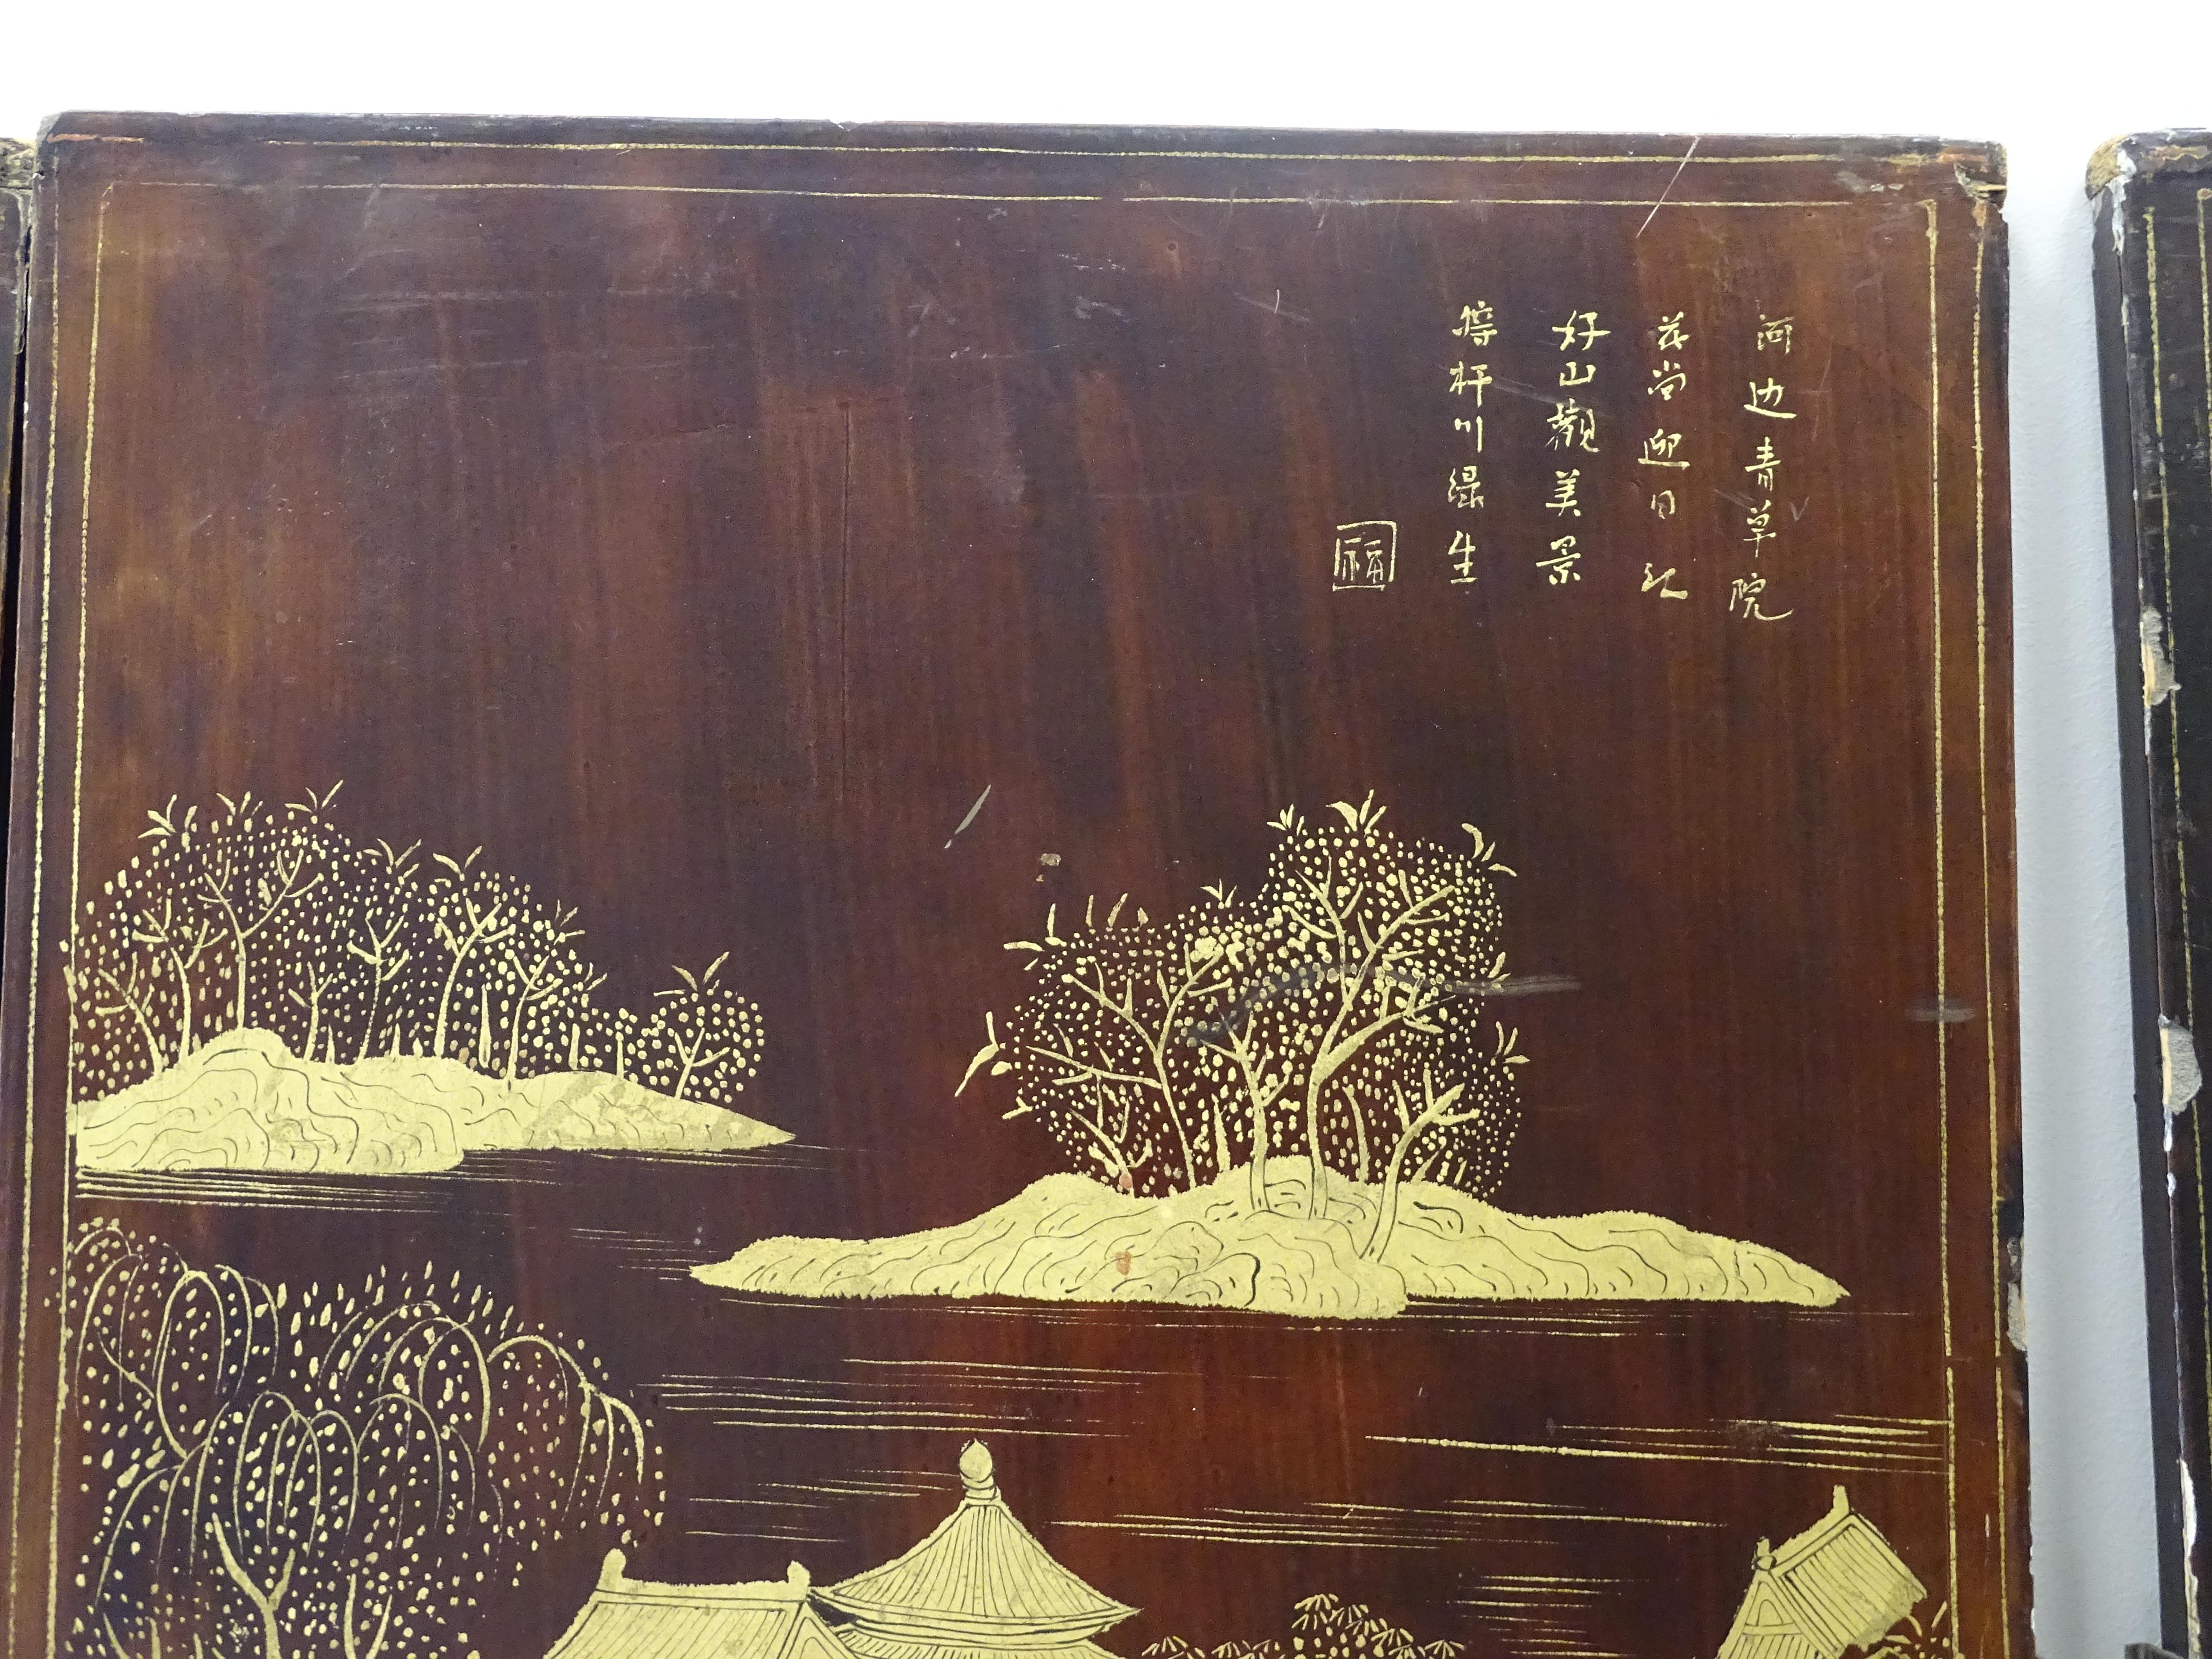 河边青草院
花当迎日礼
好山观美景
杆川绿生
福